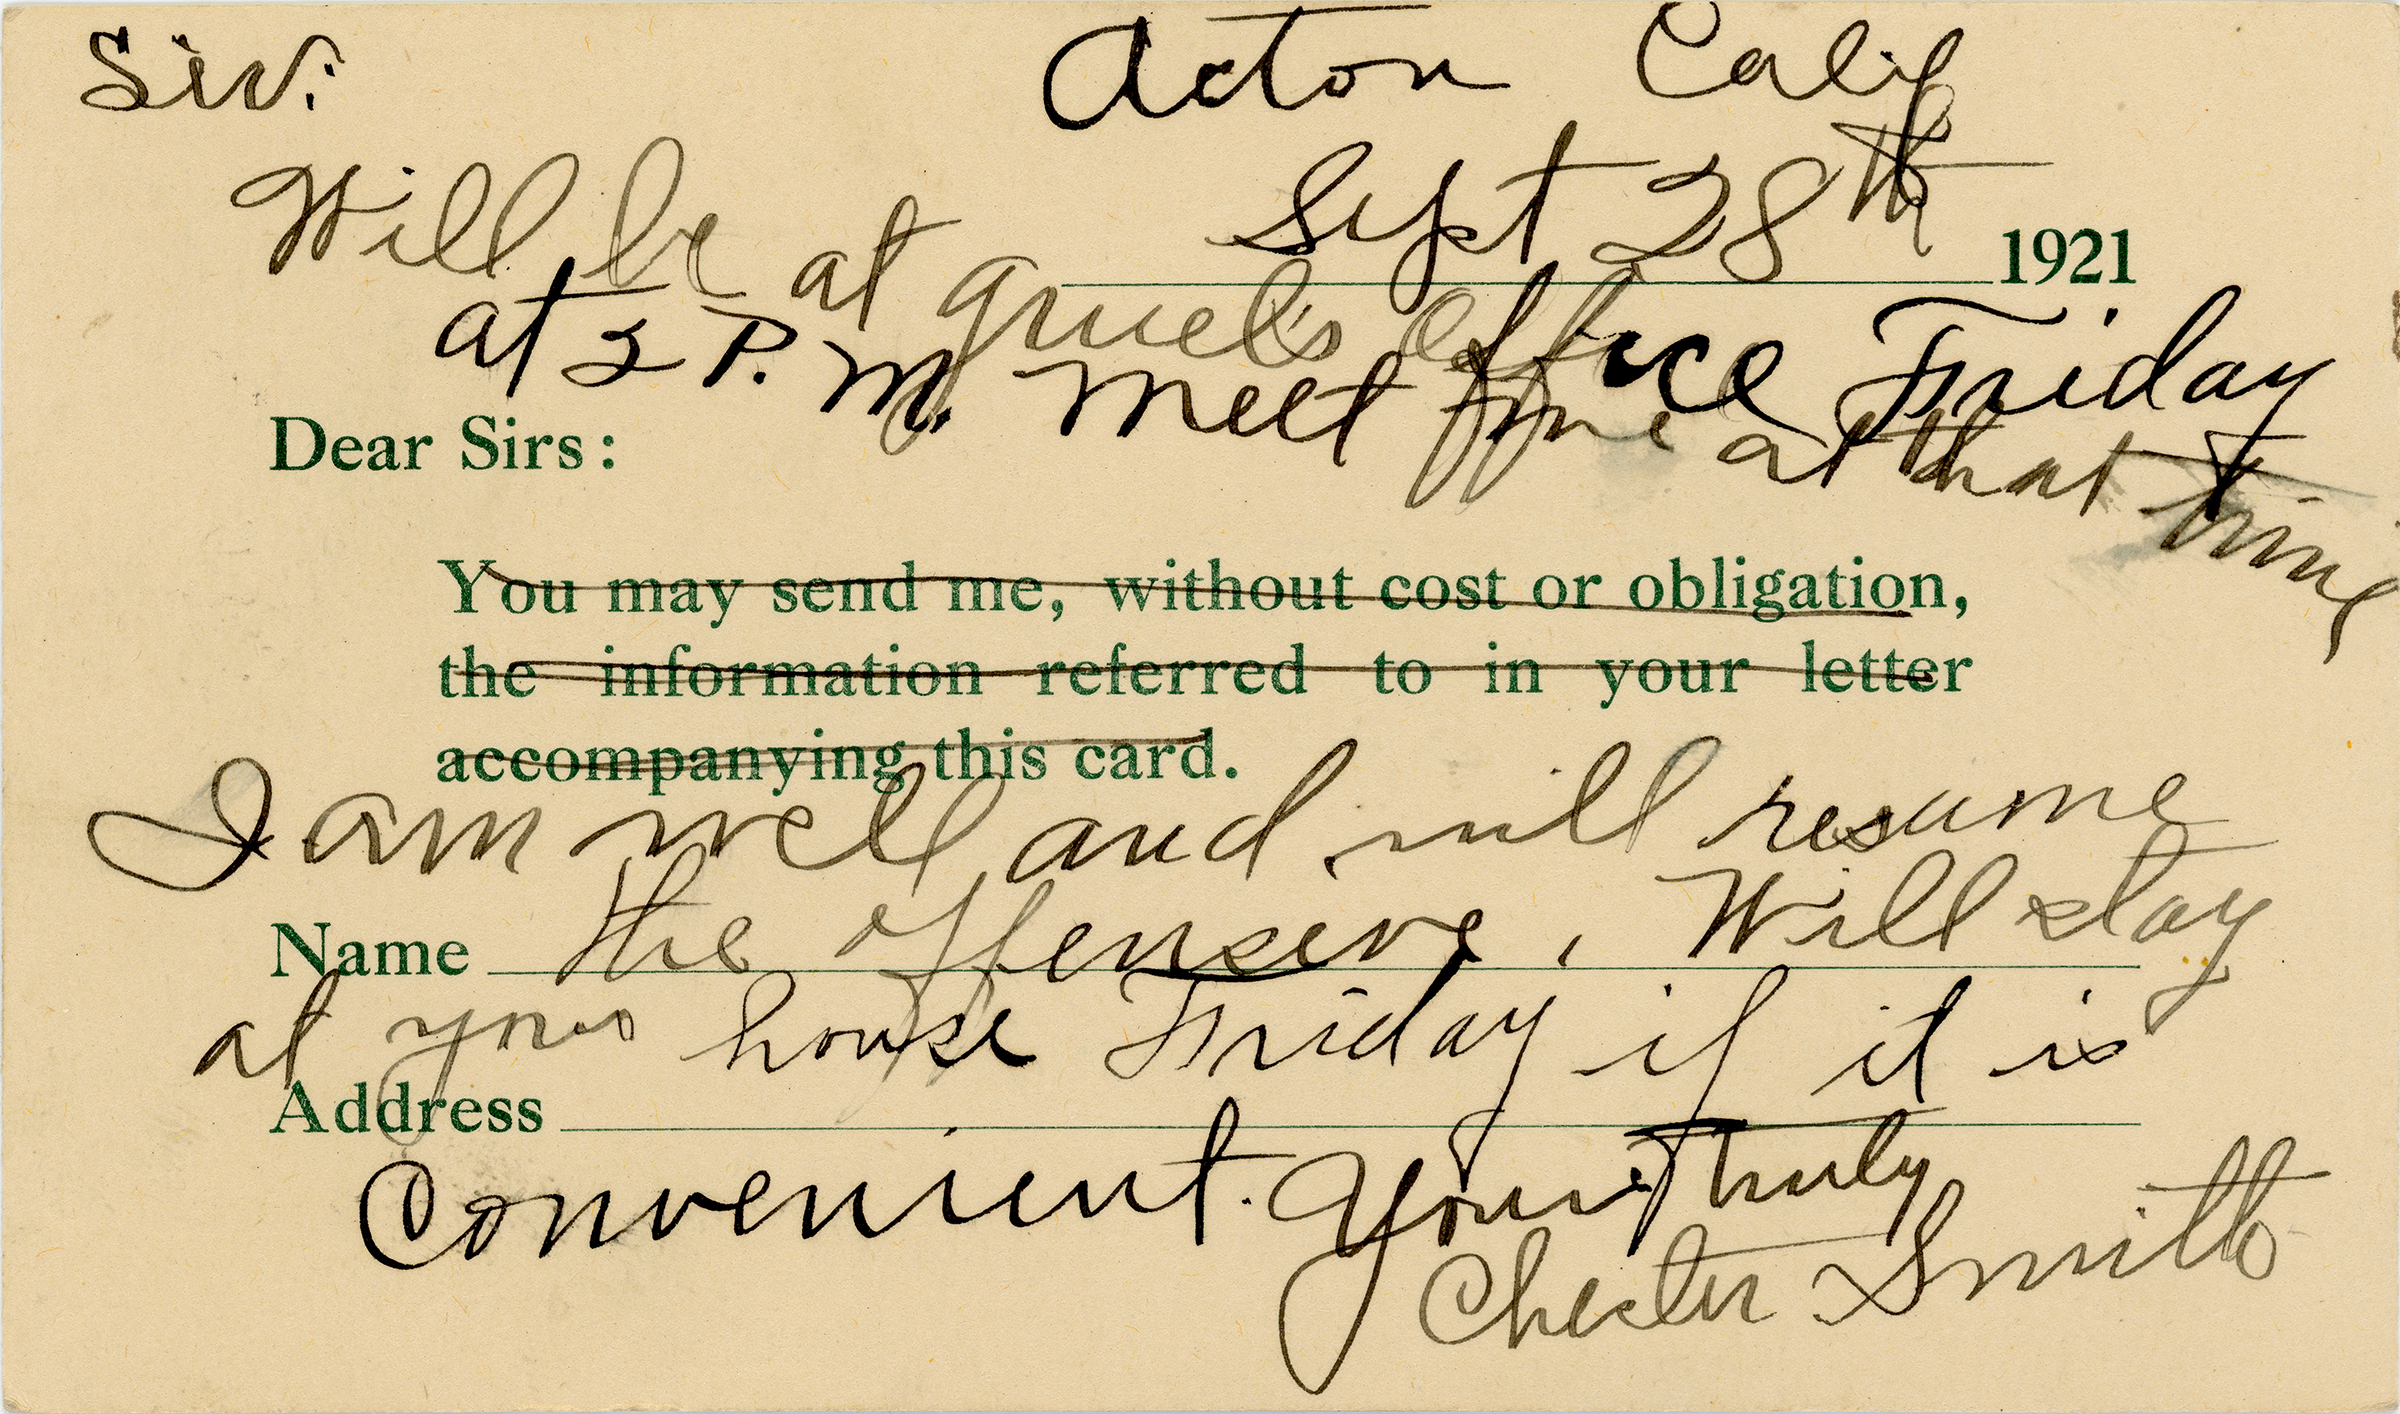 Sir: Acton Calif
Sept 28th 1921
Will be at Gruel's office Friday
at 2 P.M. Meet me at that time
Dear Sirs:
You may send me, without cost or obligation,
the information referred to in your letter
accompanying this card.
I am well and will resume
Name the offensive. Will stay
at your house Friday if it is
Address
Convenient. Yours truly
Chester Smith